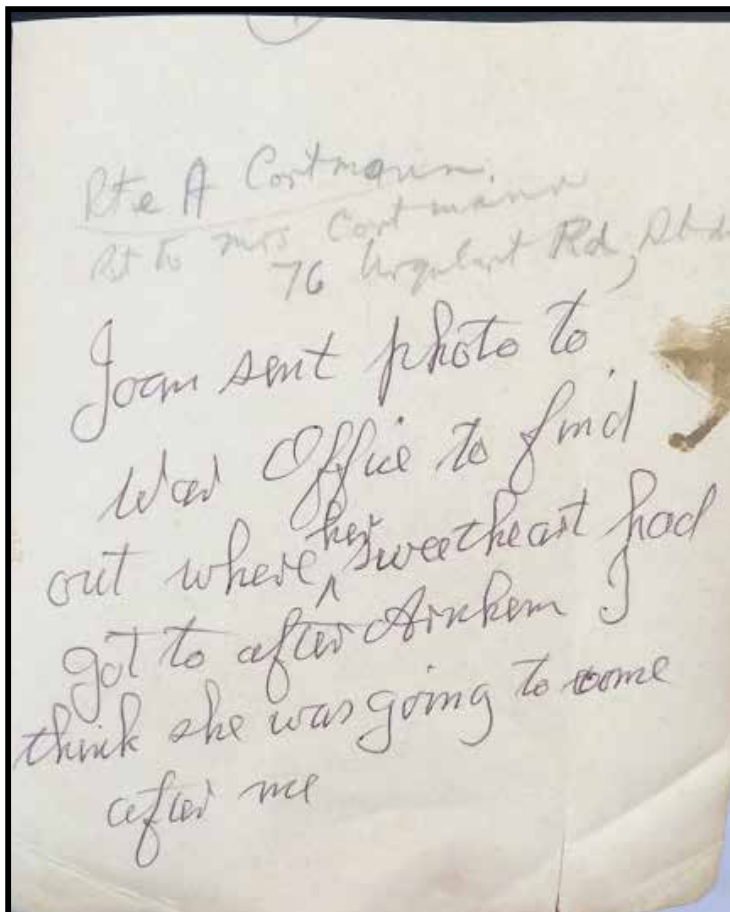 Pte A Cortmann.
Mrs Cortmann
76 Urquhart Rd,
Joan sent photo to
War Office to find
out where her sweetheart had
got to after Arnhem I
think she was going to come
after me